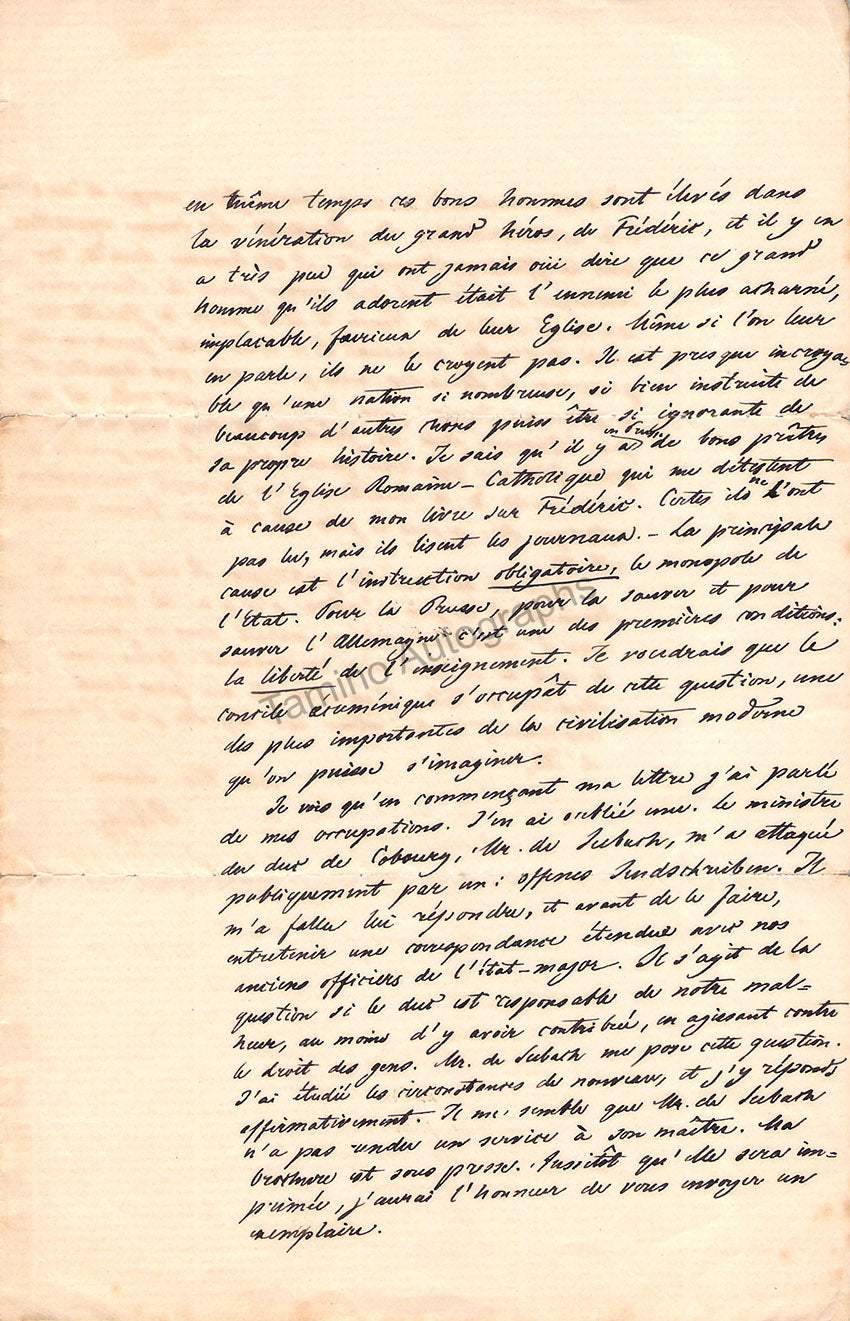 en même temps ces bons hommes sont élevés dans
la vénération du grand héros, de Frédéric, et il y en
a très peu qui ont jamais ouï dire que ce grand
homme qu'ils adorent était l'ennemi le plus acharné,
implacable, furieux de leur Eglise. Même si l'on leur
en parle, ils ne le croyent pas. Il est presque incroya=
ble qu'une nation si nombreuse, si bien instruite de
beaucoup d'autres choses puisse être si ignorante de
sa propre histoire. Je sais qu'il y a de bons prêtres
de l'Eglise Romaine-Catholique qui me détestent
à cause de mon livre sur Frédéric. Certes ils ne l'ont
pas lu, mais ils lisent les journaux. - La principale
cause est l'instruction obligatoire, le monopole de
l'Etat. Pour la Prusse, pour la sauver et pour
sauver l'Allemagne c'est une des premières conditions:
la liberté de l'enseignement. Je voudrais que le
concile œcuménique s'occupât de cette question, une
des plus importantes de la civilisation moderne
qu'on puisse s'imaginer.
Je vois qu'en commençant ma lettre j'ai parlé
de mes occupations. J'en ai oublié une. Le ministre
du duc de Cobourg, Mr. de Seebach, m'a attaqué
publiquement par un: offenes Sendschreiben. Il
m'a fallu lui répondre, et avant de le faire,
entretenir une correspondance étendue avec nos
anciens officiers de l'état-major. Il s'agit de la
question si le duc est responsable de notre mal=
heur, au moins d'y avoir contribué, en agissant contre
le droit des gens. Mr. de Seebach me pose cette question.
J'ai étudié les circonstances de nouveau, et j'y réponds
affirmativement. Il me semble que Mr. de Seebach
n'a pas rendu un service à son maître. Ma
brochure est sous presse. Aussitôt qu'elle sera im=
primée, j'aurai l'honneur de vous envoyer un
exemplaire.
Tamino Autographs